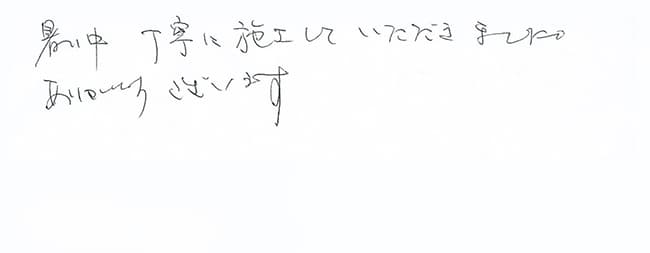 暑い中 丁寧に施工して いただきました。
ありがとう ございます